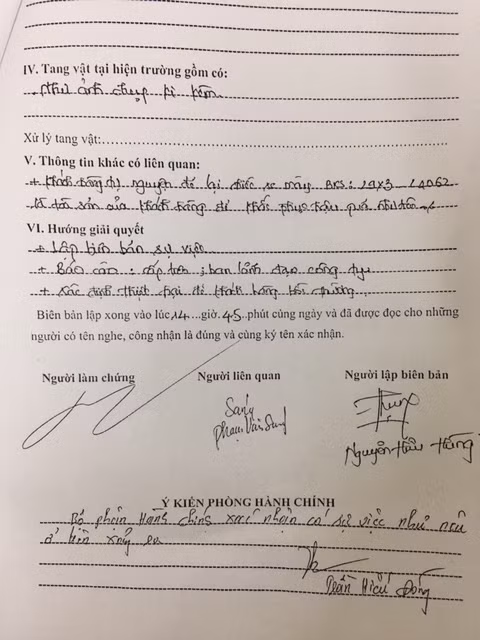 IV. Tang vật tại hiện trường gồm có:
như ảnh chụp
Xử lý tang vật:
V. Thông tin khác có liên quan:
+ Khách hàng tự nguyện để lại chiếc xe máy BKS:
là tài sản của khách hàng để khắc phục hậu quả
VI. Hướng giải quyết
+ Lập biên bản sự việc
+ Báo cáo: cấp trên; ban lãnh đạo công ty
+ Xác định thiệt hại để khách hàng bồi thường
Biên bản lập xong vào lúc 14 giờ 45 phút cùng ngày và đã được đọc cho những
người có tên nghe, công nhận là đúng và cùng ký tên xác nhận.
Người làm chứng Người liên quan Người lập biên bản
Sang
Phạm Văn Sang
Nguyễn Hữu Hằng
Ý KIẾN PHÒNG HÀNH CHÍNH
Bộ phận Hành chính xác nhận có sự việc như nêu
ở trên xảy ra
Trần Hiếu Đông